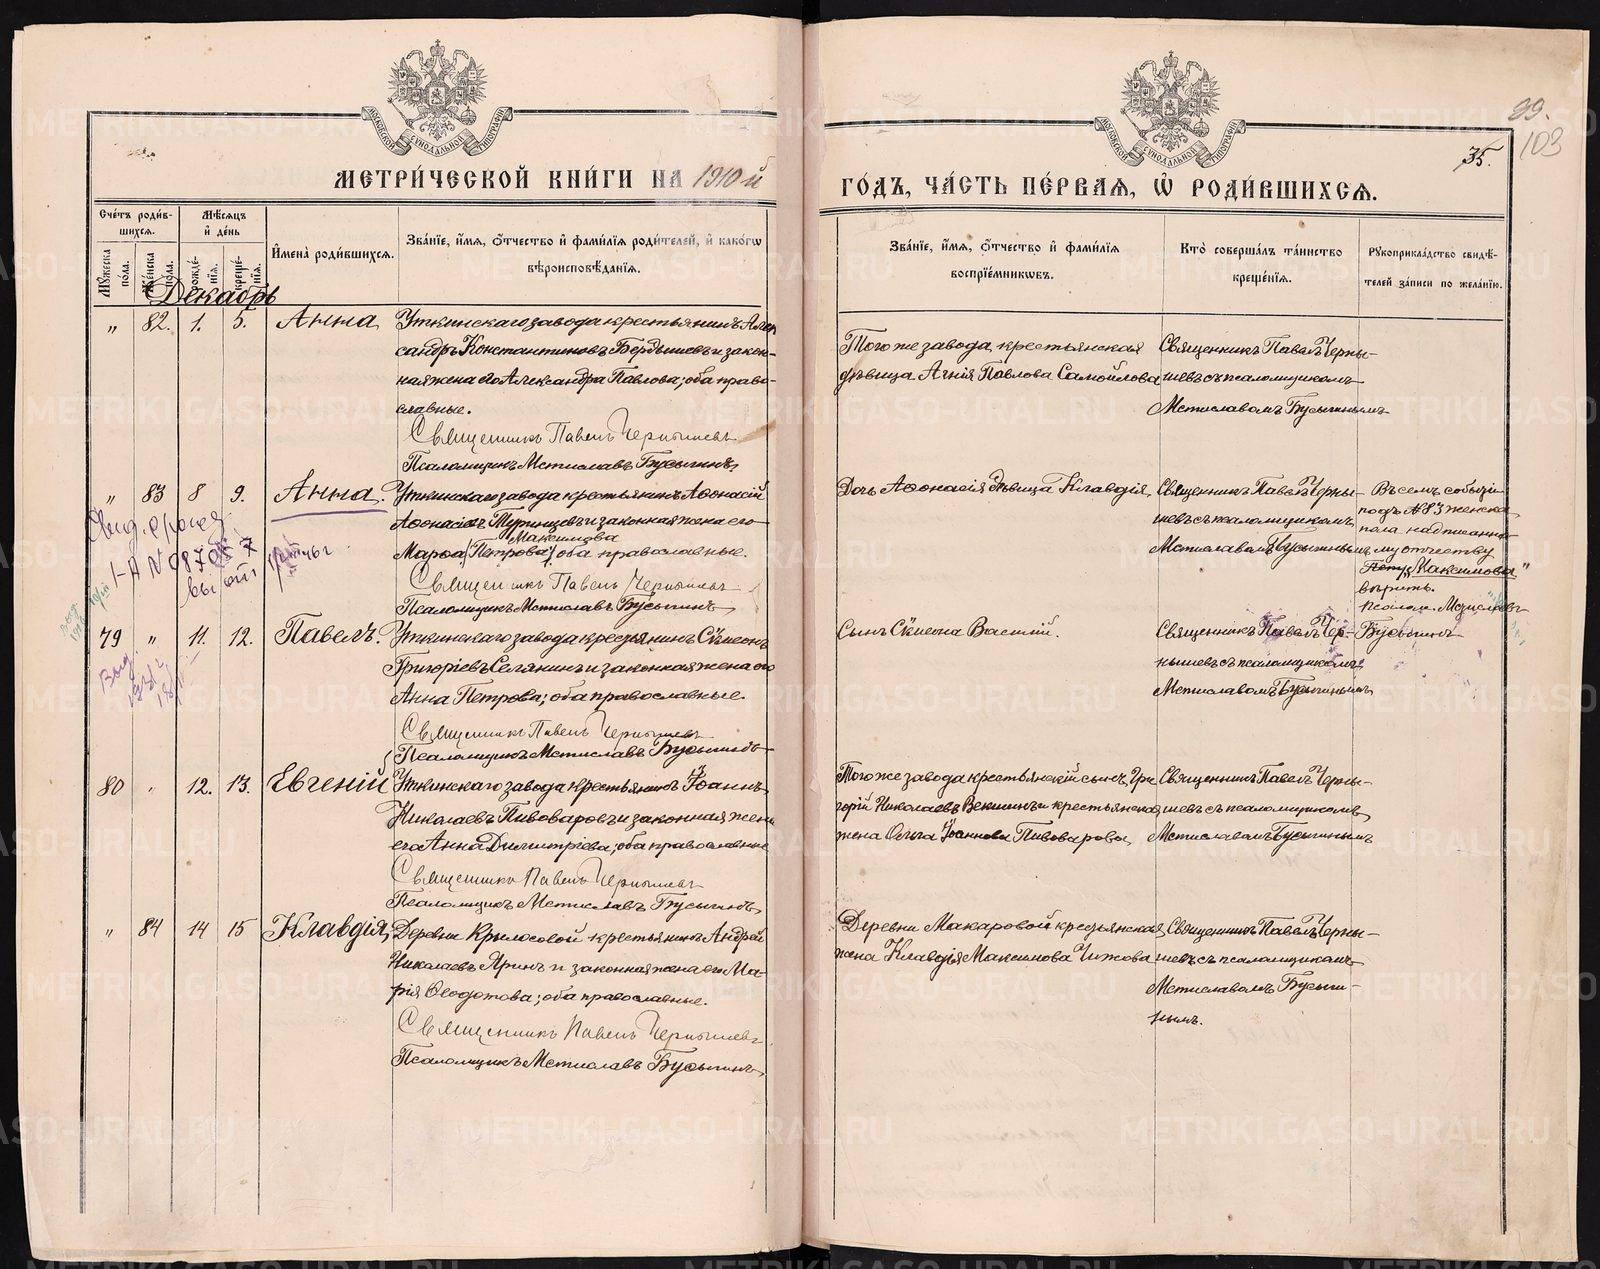 МЕТРИ́ЧЕСКОЙ КНИ́ГИ НА 1910-й
ГО́ДЪ, ЧА́СТЬ ПЕ́РВАЯ, Ѡ҆ РОДИ́ВШИХСЯ.
99.
103
35.
МОСКОВСКОЙ СѴНОДАЛЬНОЙ ТИПОГРАФІИ
МОСКОВСКОЙ СѴНОДАЛЬНОЙ ТИПОГРАФІИ
Сче́тъ роди́в-
шихся.
Мѣ́сяцъ
и҆ де́нь
Мꙋ́жеска
пола.
Же́нска
пола.
рожде́-
нїѧ.
креще́-
нїѧ.
И҆мена̀ роди́вшихся.
Зва́нїе, и҆́мя, ѻ҆́тчество и҆ фами́лїя роди́телей, и҆ како́гѡ
вѣроисповѣ́данїя.
Зва́нїе, и҆́мя, ѻ҆́тчество и҆ фами́лїя
воспрїе́мникѡвъ.
Кто̀ соверша́лъ та́инство
креще́нїя.
Рꙋкоприкла́дство свидѣ́-
телей за́писи по жела́нїю.
Декабрь
„ 82. 1. 5. Анна
Уткинскаго завода крестьянинъ Алек
сандръ Константиновъ Бердышевъ и закон-
ная жена его Александра Павлова; оба право-
славные.
Священникъ Павелъ Чернышевъ
Псаломщикъ Мстиславъ Бусыгинъ.
Того же завода крестьянская
дѣвица Агнія Павлова Самойлова
Священникъ Павелъ Черны-
шевъ съ псаломщикомъ
Мстиславомъ Бусыгинымъ
„ 83 8 9. Анна.
Уткинскаго завода крестьянинъ Аѳонасій
Аѳонасіевъ Туринцевъ и законная жена его
Максимова
Марѳа (Петрова) оба православные.
Священникъ Павелъ Чернышевъ
Псаломщикъ Мстиславъ Бусыгинъ
Дочь Аѳонасія дѣвица Клавдія
Священникъ Павелъ Черны-
шевъ съ псаломщикомъ
Мстиславомъ Бусыгинымъ
Въ семъ событіи
подъ №83 женска
пола надписанно-
му отчеству
„Максимова"
вѣрить.
Псалом. Мстиславъ
Бусыгинъ
79 „ 11. 12. Павелъ.
Уткинскаго завода крестьянинъ Сѵмеонъ
Григоріевъ Селянинъ и законная жена его
Анна Петрова; оба православные.
Священникъ Павелъ Чернышевъ
Псаломщикъ Мстиславъ Бусыгинъ
Сынъ Сѵмеона Васілій.
Священникъ Павелъ Чер-
нышевъ съ псаломщикомъ
Мстиславомъ Бусыгинымъ
80 „ 12. 13. Евгеній
Уткинскаго завода крестьянинъ Іоаннъ
Николаевъ Пивоваровъ и законная жена
его Анна Димитріева; оба православные
Священникъ Павелъ Чернышевъ
Псаломщикъ Мстиславъ Бусыгинъ
Того же завода крестьянскій сынъ Гри
горій Николаевъ Векшинъ и крестьянская
жена Ольга Іоаннова Пивоварова
Священникъ Павелъ Черны-
шевъ съ псаломщикомъ
Мстиславомъ Бусыгинымъ
„ 84 14 15 Клавдія
Деревни Крылосовой крестьянинъ Андрей
Николаевъ Яринъ и законная жена его Ма-
рія Ѳеодотова; оба православные.
Священникъ Павелъ Чернышевъ
Псаломщикъ Мстиславъ Бусыгинъ
Деревни Макаровой крестьянская
жена Клавдія Максимова Чижова
Священникъ Павелъ Черны-
шевъ съ псаломщикомъ
Мстиславомъ Бусыги-
нымъ.
METRIKI.GASO-URAL.RU